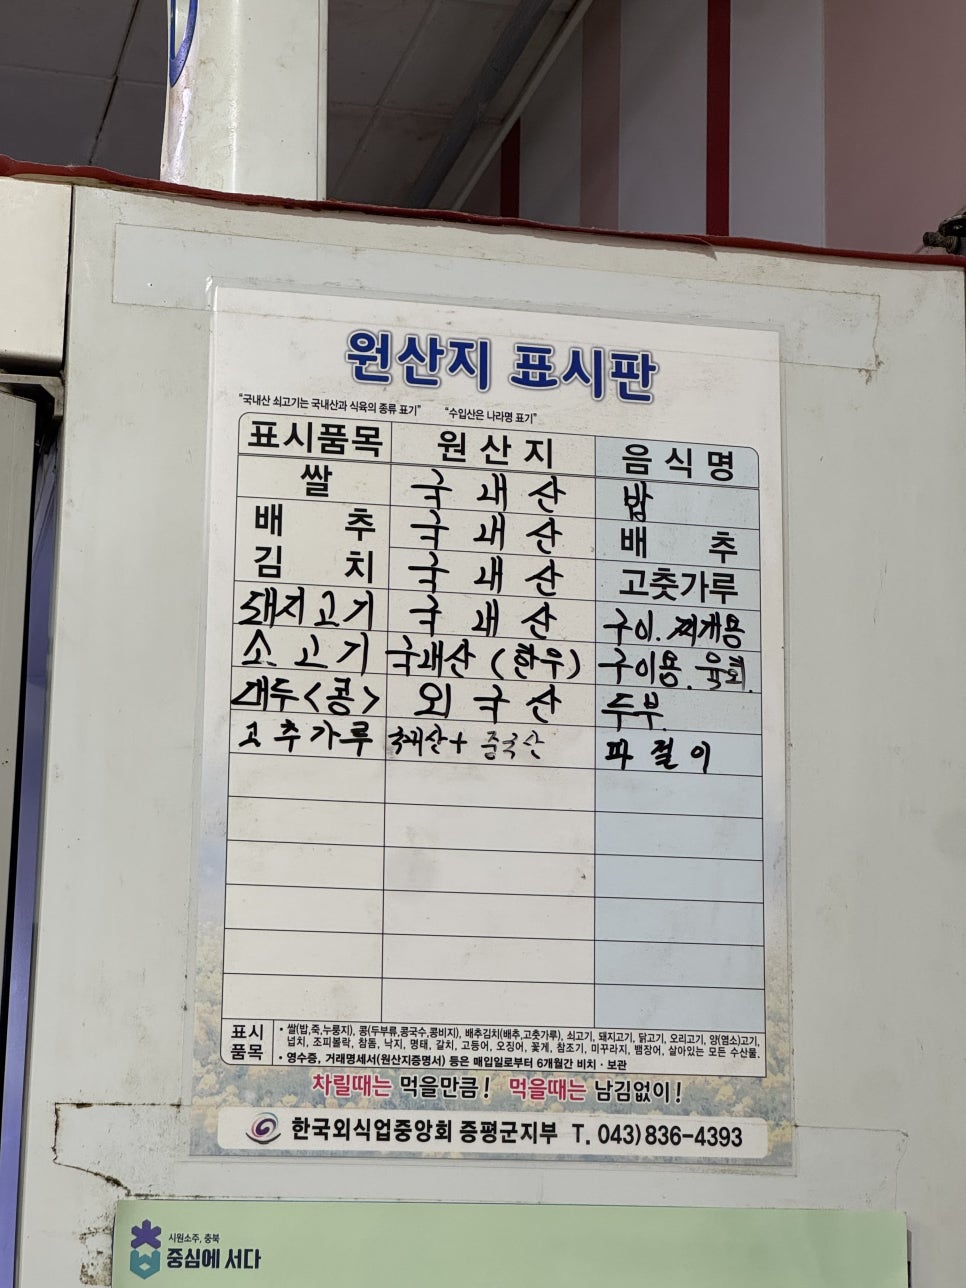 원산지 표시판
"국내산 쇠고기는 국내산과 식육의 종류 표기" "수입산은 나라명 표기"
표시품목 원산지 음식명
쌀 국내산 밥
배추 국내산 배추
김치 국내산 고춧가루
돼지고기 국내산 구이. 찌개용
소고기 국내산 (한우) 구이용. 육회.
대두<콩> 외국산 두부.
고추가루 국내산+중국산 파절이
표시품목
• 쌀(밥,죽,누룽지), 콩(두부류,콩국수,콩비지), 배추김치(배추,고춧가루), 쇠고기, 돼지고기, 닭고기, 오리고기, 양(염소)고기,
넙치, 조피볼락, 참돔, 낙지, 명태, 갈치, 고등어, 오징어, 꽃게, 참조기, 미꾸라지, 뱀장어, 살아있는 모든 수산물.
• 영수증, 거래명세서(원산지증명서) 등은 매입일로부터 6개월간 비치·보관
차릴때는 먹을만큼! 먹을때는 남김없이!
한국외식업중앙회 증평군지부 T. 043)836-4393
시원소주, 충북
중심에 서다